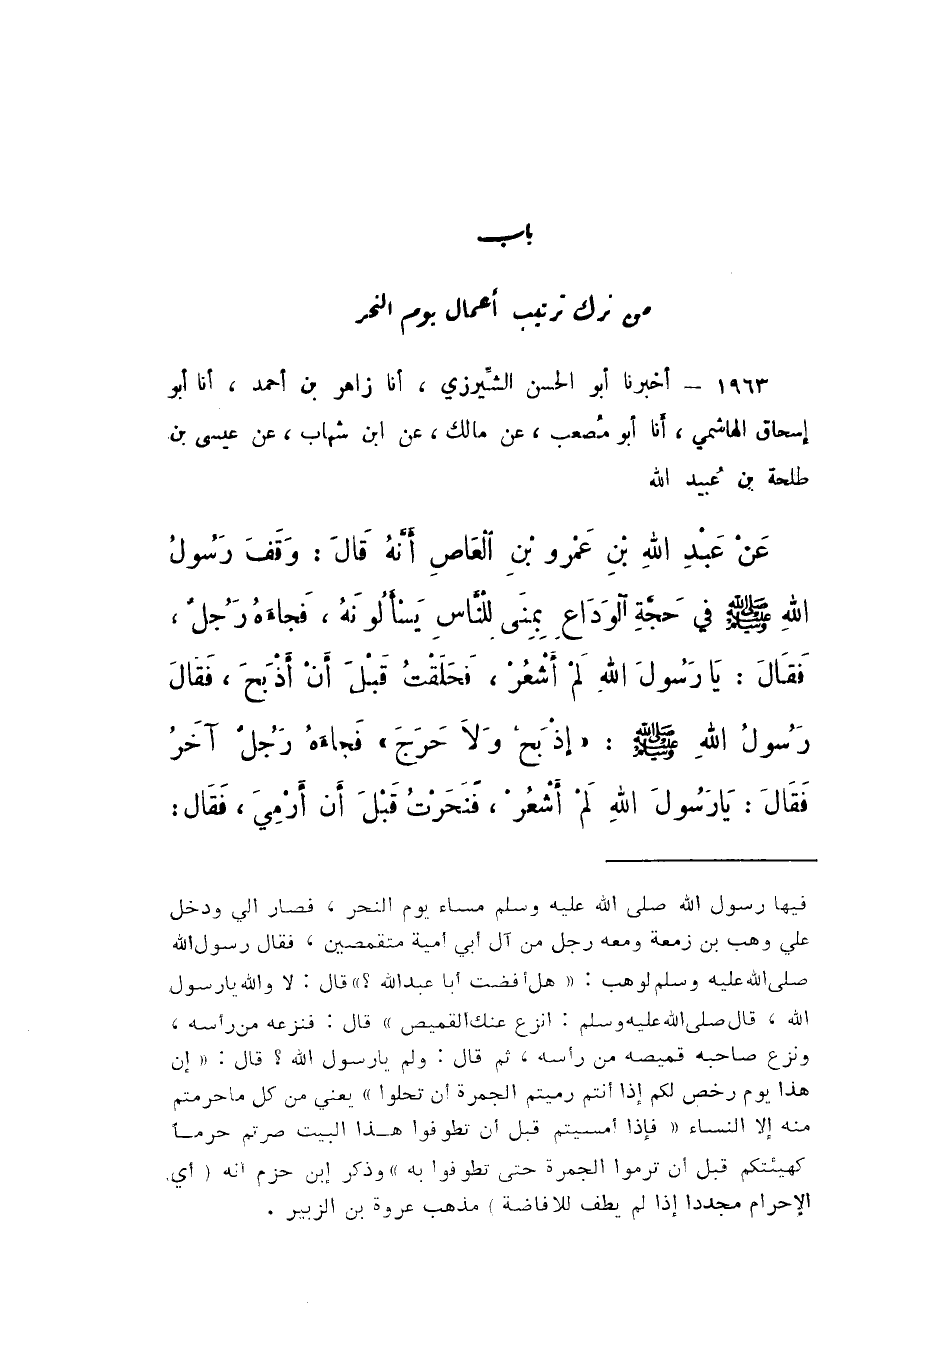 باب
من ترك ترتيب أعمال يوم النحر
١٩٦٣ – أخبرنا أبو الحسن الشِّيرزي ، أنا زاهر بن أحمد ، أنا أبو
إسحاق الهاشمي ، أنا أبو مُصعب ، عن مالك ، عن ابن شهاب ، عن عيسى بن
طلحة بن عُبيد الله
عَنْ عَبْدِ اللهِ بْنِ عَمْرِو بْنِ الْعَاصِ أَنَّهُ قَالَ : وَقَفَ رَسُولُ
اللهِ ﷺ في حَجَّةِ الْوَدَاعِ بِمِنَى لِلنَّاسِ يَسْأَلُونَهُ ، فَجاءَهُ رَجُلٌ ،
فَقَالَ : يَا رَسُولَ اللهِ لَمْ أَشْعُرْ ، فَحَلَقْتُ قَبْلَ أَنْ أَذْبَحَ ، فَقَالَ
رَسُولُ اللهِ ﷺ : « إِذْبَحْ وَلاَ حَرَجَ » فَجاءَهُ رَجُلٌ آخَرُ
فَقَالَ : يَا رَسُولَ اللهِ لَمْ أَشْعُرْ ، فَنَحَرْتُ قَبْلَ أَن أَرْمِيَ ، فَقَال :
فيها رسول الله صلى الله عليه وسلم مساء يوم النحر ، فصار الي ودخل
علي وهب بن زمعة ومعه رجل من آل أبي أمية متقمصين ، فقال رسول الله
صلى الله عليه وسلم لوهب : « هل أفضت أبا عبدالله ؟ » قال : لا والله يارسول
الله ، قال صلى الله عليه وسلم : انزع عنك القميص » قال : فنزعه من رأسه ،
ونزع صاحبه قميصه من رأسه ، ثم قال : ولم يارسول الله ؟ قال : « إن
هذا يوم رخص لكم إذا أنتم رميتم الجمرة أن تحلوا » يعني من كل ماحرمتم
منه إلا النساء « فإذا أمسيتم قبل أن تطوفوا هـذا البيت صرتم حرمـاً
كهيئتكم قبل أن ترموا الجمرة حتى تطوفوا به » وذكر إبن حزم انه ( أي
الإحرام مجددا إذا لم يطف للافاضة ) مذهب عروة بن الزبير .